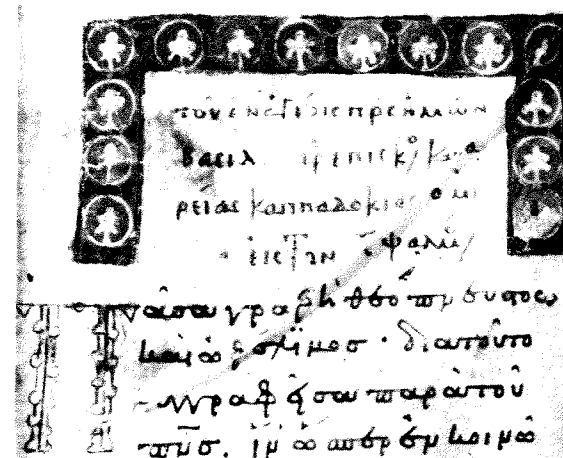 τοῦ ἐν ἁγίοις πρς ἡμῶν
βασιλ ἐπισκ
ρείας καππαδοκίας ὁμι
εἰς τὸν ψαλμ
ᾶσα γραφὴ θεόπνευστος
καὶ ὠφέλιμος · διὰ τοῦτο
γγραφῆσα παρὰ τοῦ
πνσ. ἵν ὥσπερ ἐν κοινῶ